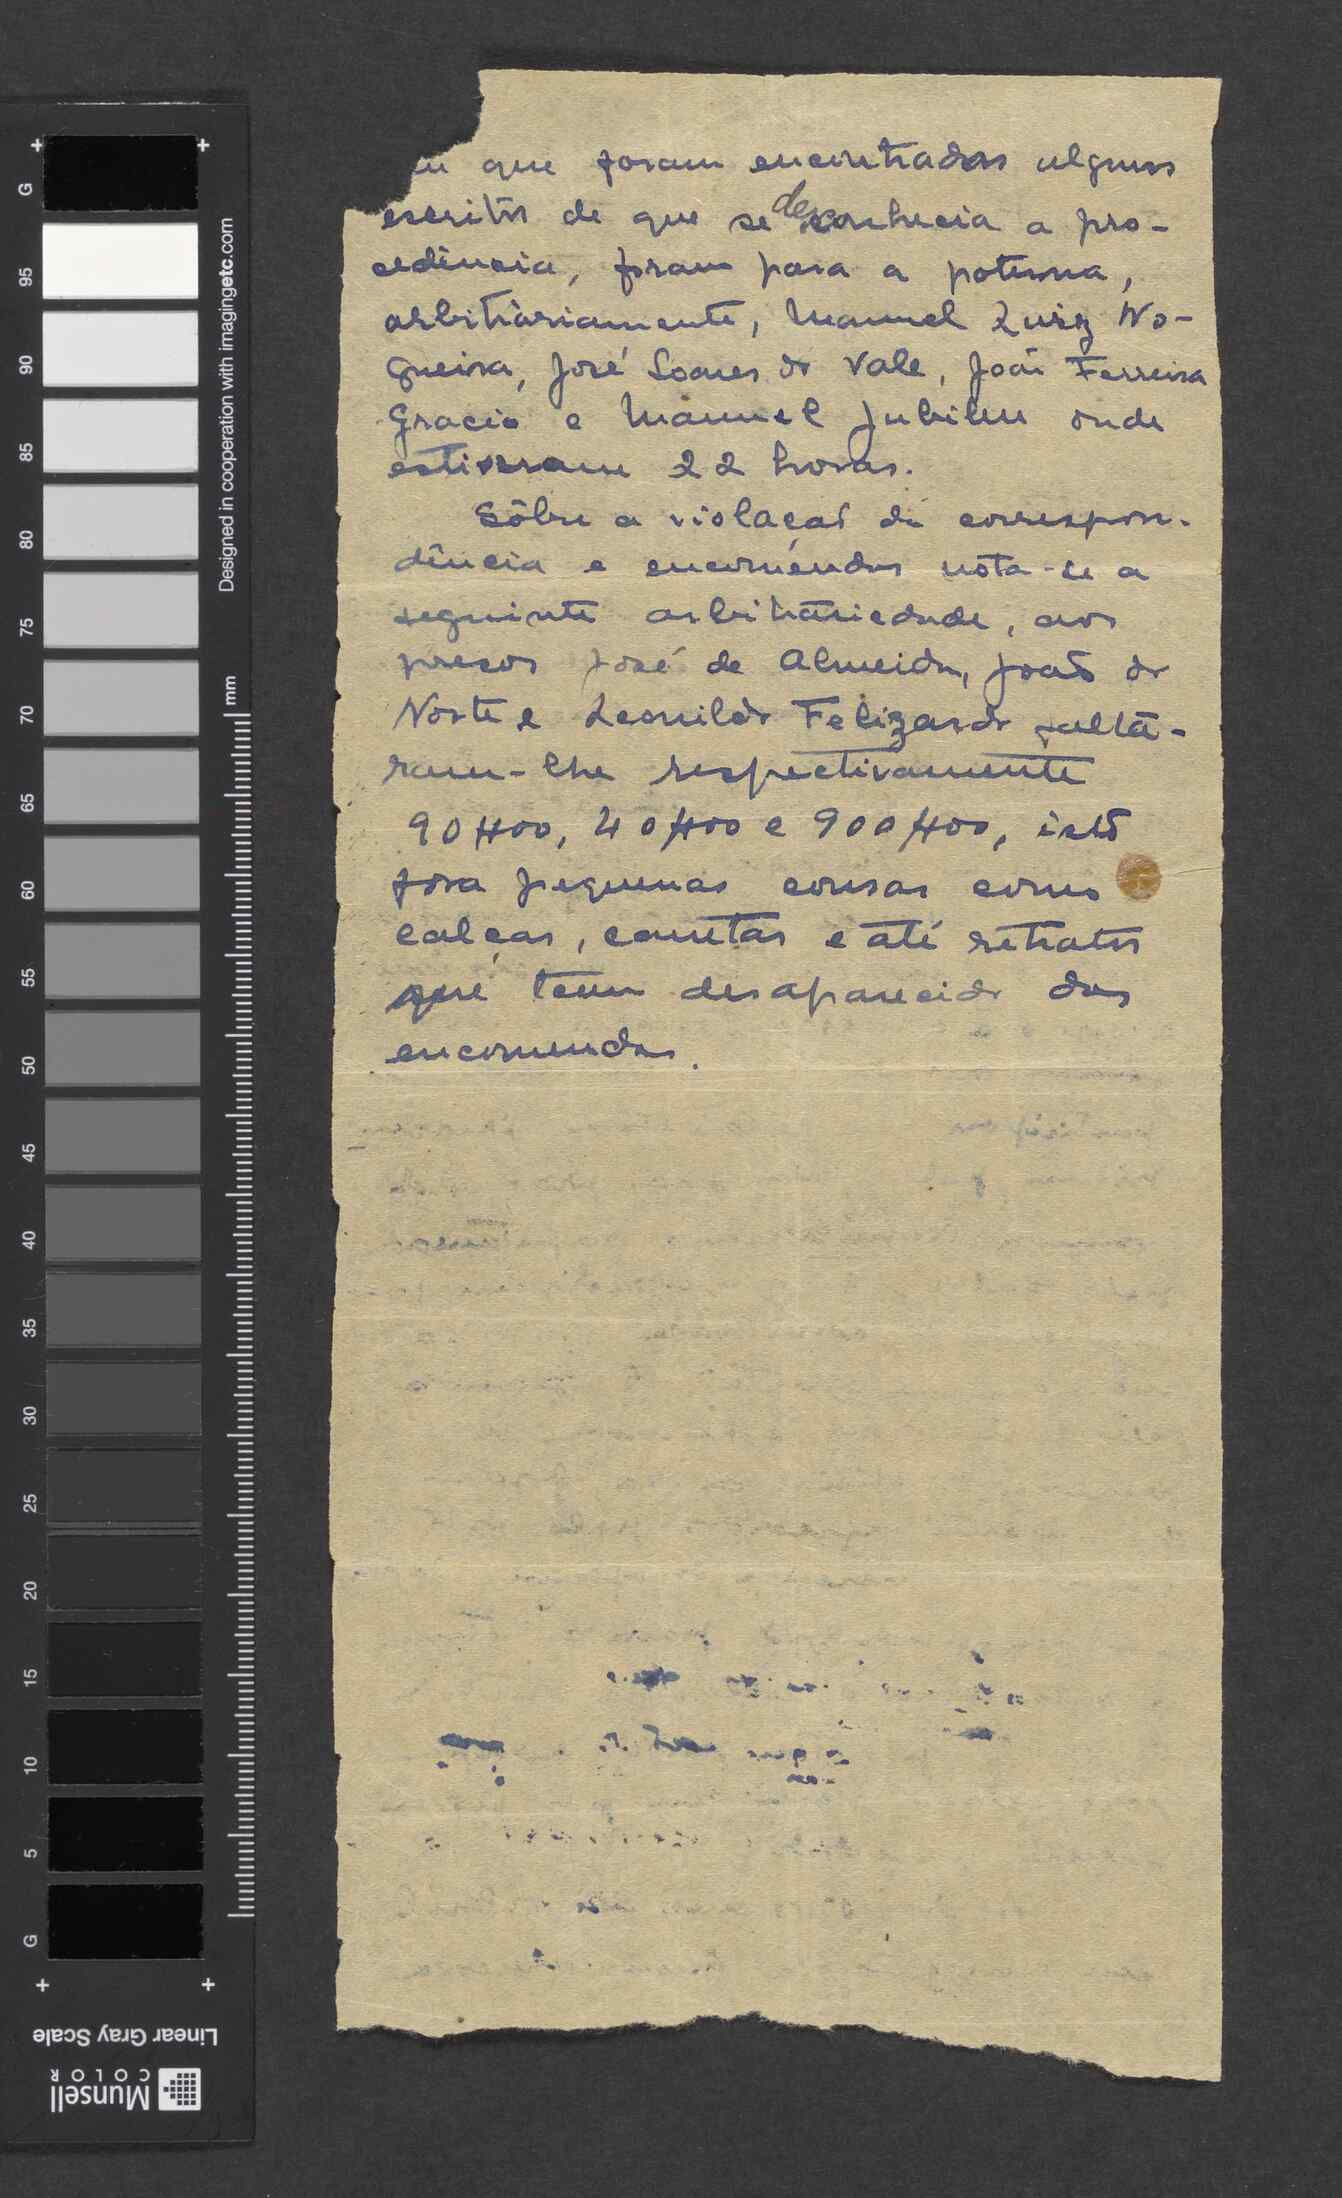 em que foram encontrados alguns
escritos de que se desconhecia a pro-
cedência, foram para a poterna,
arbitráriamente, Manuel Luiz No-
gueira, José Soares do Vale, João Ferreira
Gracio e Manuel Jubileu onde
estiveram 22 horas.
Sôbre a violação de correspon-
dência e encomendas nota-se a
seguinte arbitráriedade, aos
presos José de Almeida, João do
Norte e Leonildo Felizardo faltá-
ram-lhe respectivamente
90$00, 40$00 e 900$00, isto
fora pequenas cousas como
calças, canetas e até retratos
que teem desaparecido das
encomendas.
Designed in cooperation with imagingetc.com
mm
G 95 90 85 80 75 70 65 60 55 50 45 40 35 30 25 20 15 10 5 G
Linear Gray Scale
Munsell
COLOR